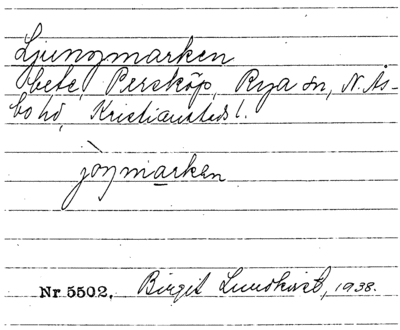 Ljungmarken
bete, Persköp, Rya sn, N. Ås-
bo hd, Kristianstads l.
jòŋmarkən
Nr. 5502. Birgit Lundkvist, 1938.